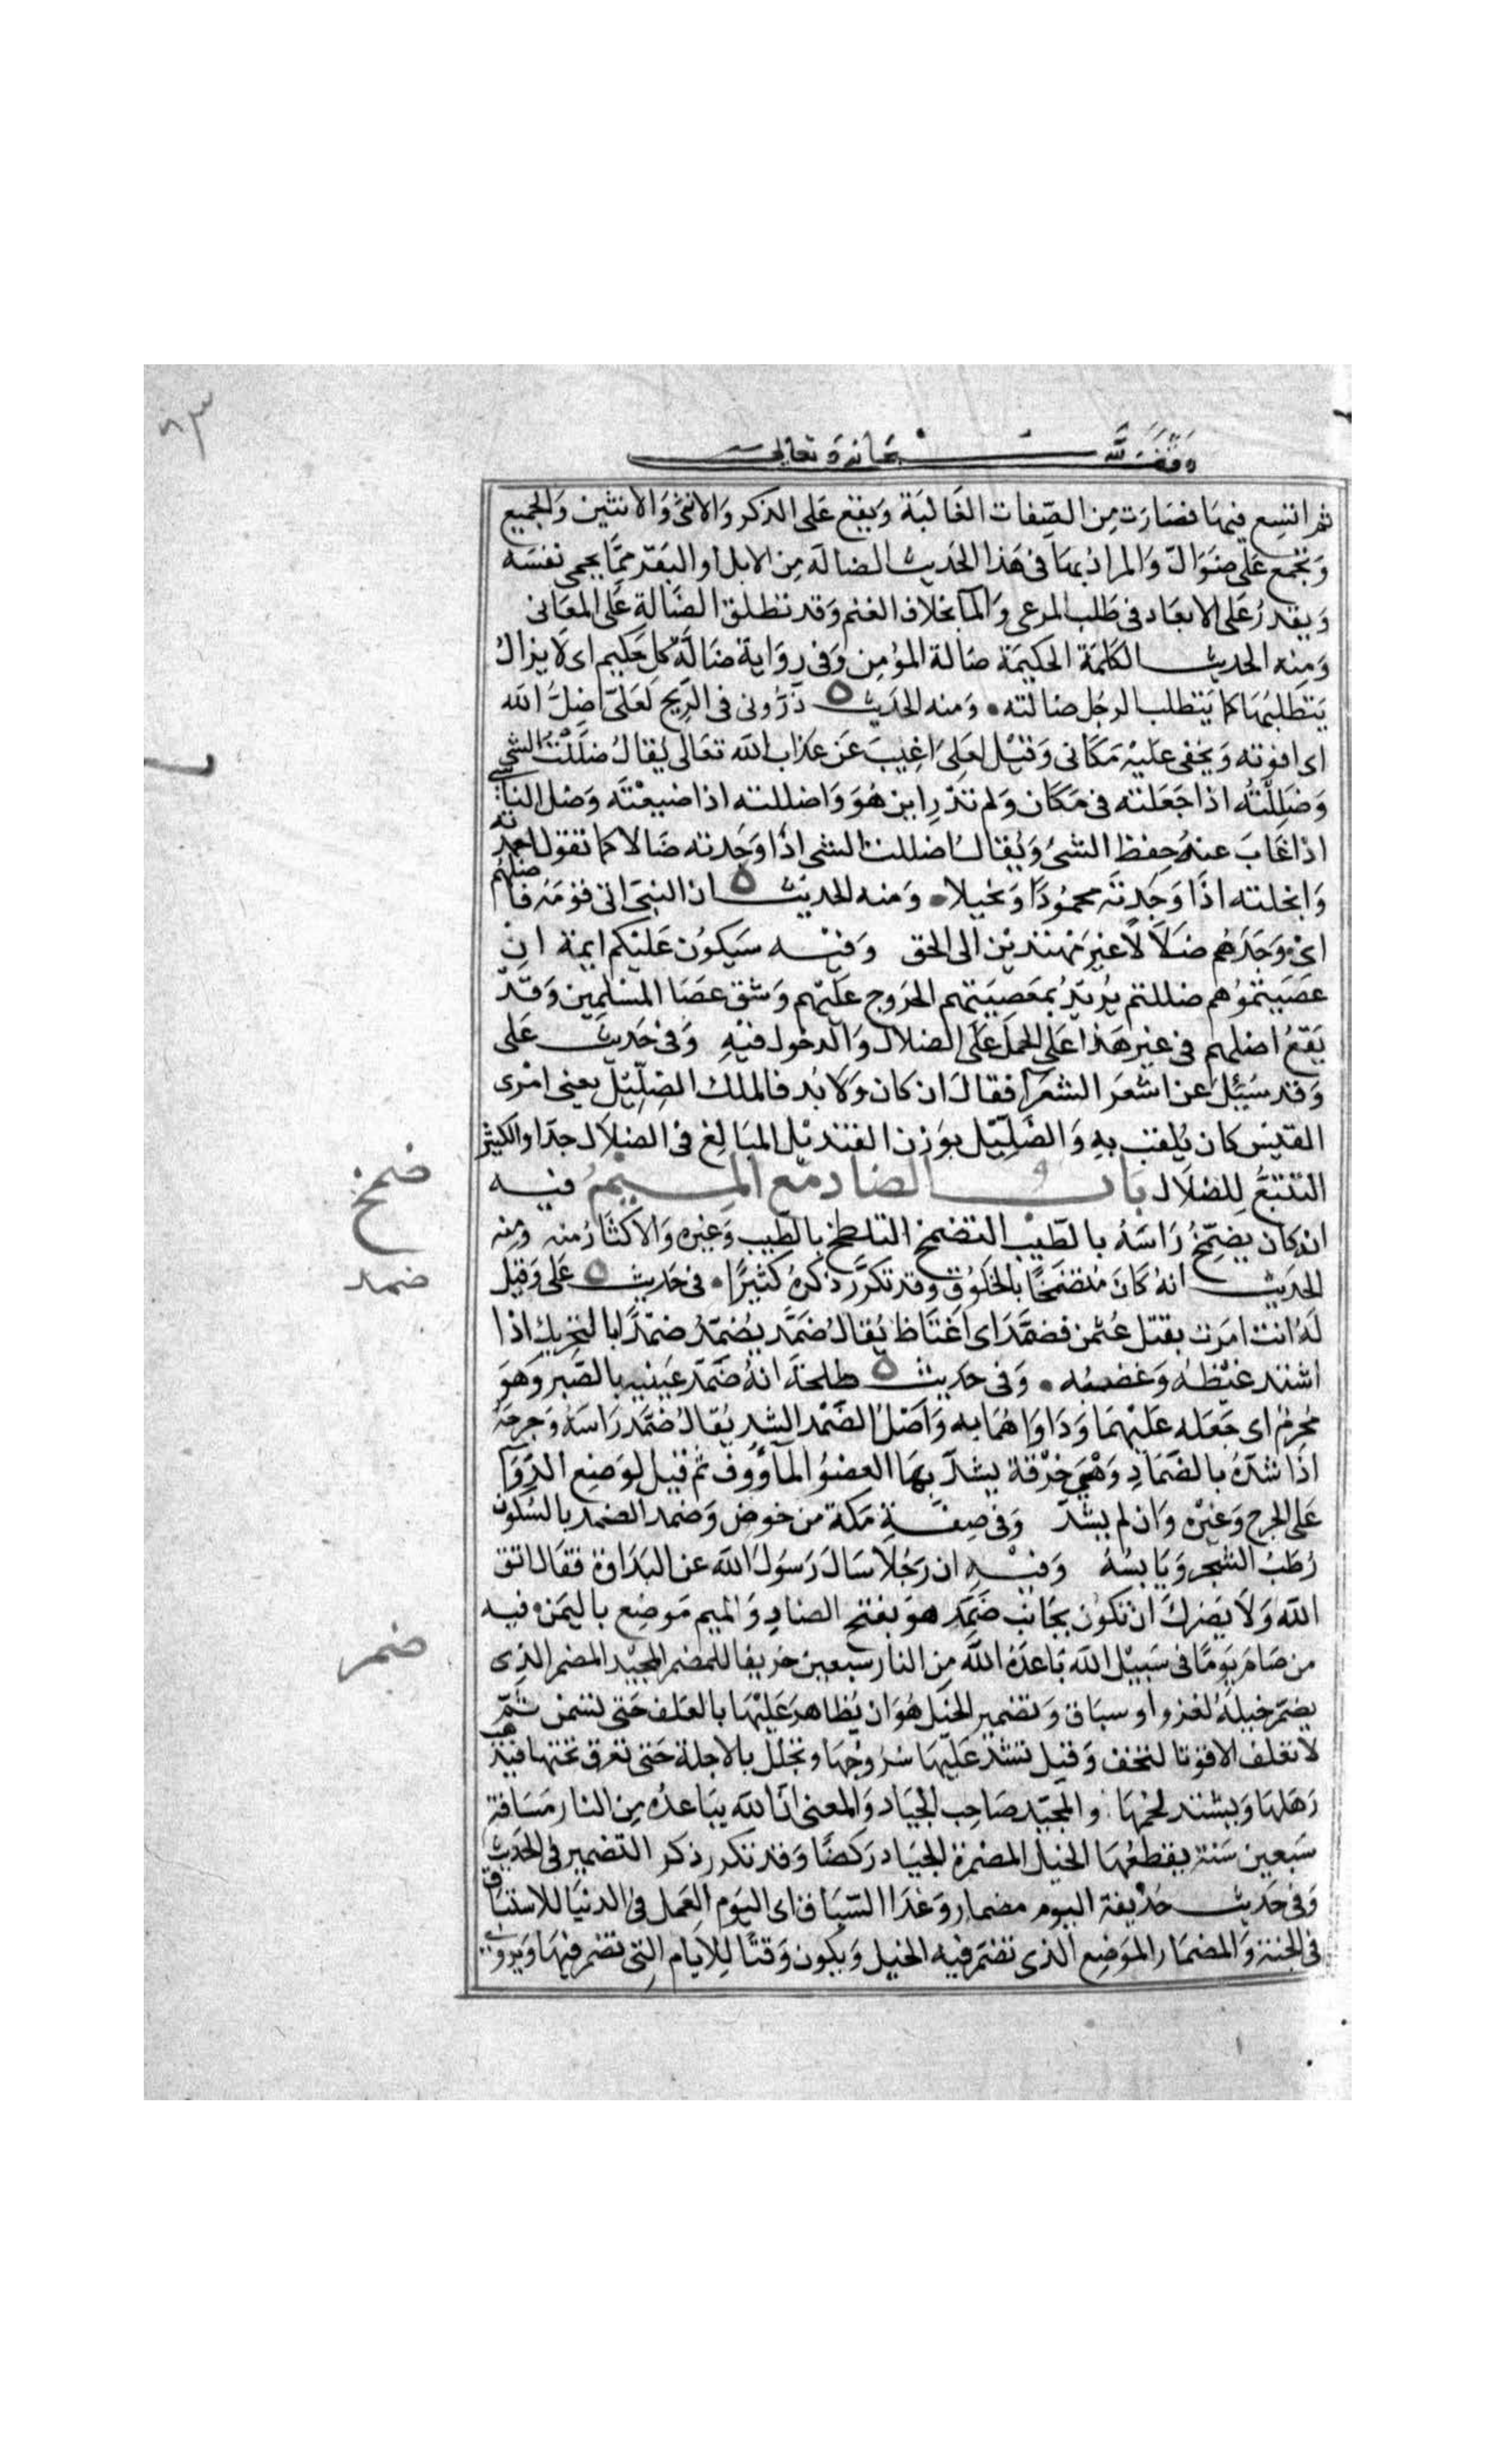 ٨٣
وقف لله سبحانه وتعالى
ثم اتسع فيها فصارت من الصفات الغالبة ويقع على الذكر والانثى والاثنين والجميع
وتجمع على ضوال والمراد بها في هذا الحديث الضالة من الابل او البقر مما يحمى نفسه
ويقدر على الابعاد في طلب المرعى والمآ بخلاف الغنم وقد تطلق الضالة على المعانى
ومنه الحديث الكلمة الحكيمة ضالة المؤمن وفى رواية ضالة كل حكيم اى لا يزال
يتطلبها كما يتطلب الرجل ضالته ومنه الحديث ذرونى فى الريح لعلى اضل الله
اى افوته ويخفى عليه مكانى وقيل لعلى اغيب عن عذاب الله تعالى يقال ضللت الشى
وضللته اذا جعلته فى مكان ولم تدر اين هو واضللته اذا ضيعته وضل الناسى
اذا غاب عنه حفظ الشئ ويقال اضللت الشى اذا وجدته ضالا كما تقول احمدته
وابخلته اذا وجدته محمودا وبخيلا ومنه الحديث ان النبى اتى قومه فاضلهم
اى وجدهم ضلالا غير مهتدين الى الحق وفيه سيكون عليكم ايمة ان
عصيتموهم ضللتم يريد بمعصيتهم الخروج عليهم وشق عصا المسلمين وقد
يقع اضلهم فى غير هذا على الحمل على الضلال والدخول فيه وفى حديث على
وقد سئل عن اشعر الشعرآ فقال ان كان ولا بد فالملك الضليل يعنى امرى
القيس كان يلقب به والضليل بوزن القنديل المبالغ فى الضلال جدا والكثير
التتبع للضلال باب الضاد مع الميم فيه
ضمخ
انه كان يضمخ راسه بالطيب التضمخ التلطخ بالطيب وغيره والاكثار منه ومنه
الحديث انه كان متضمخا بالخلوق وقد تكرر ذكره كثيرا فى حديث على وقيل
ضمد
له انت امرت بقتل عثمن فضمد اى اغتاظ يقال ضمد يضمد ضمدا بالتحريك اذا
اشتد غيظه وغضبه وفى حديث طلحة انه ضمد عينيه بالصبر وهو
محرم اى جعله عليهما وداواهما به واصل الضمد الشد يقال ضمد راسه وجرحه
اذا شده بالضماد وهى خرقة يشد بها العضو المأووف ثم قيل لوضع الدوآ
على الجرح وغيره وان لم يشد وفى صفة مكة من خوص وضمد الضمد بالسكون
رطب الشجر ويابسه وفيه ان رجلا سال رسول الله عن البداوة فقال اتق
الله ولا يضرك ان تكون بجانب ضمد هو بفتح الضاد والميم موضع باليمن فيه
ضمر
من صام يوما فى سبيل الله باعده الله من النار سبعين خريفا للمضمر المجيد المضمر الذى
يضمر خيله لغزو او سباق وتضمير الخيل هو ان يظاهر عليها بالعلف حتى تسمن ثم
لا تعلف الا قوتا لتخف وقيل تشد عليها سروجها وتجلل بالاجلة حتى تعرق تحتها فيذهب
رهلها ويشتد لحمها والمجيد صاحب الجياد والمعنى ان الله يباعده من النار مسافة
سبعين سنة يقطعها الخيل المضمرة الجياد ركضا وقد تكرر ذكر التضمير فى الحديث
وفى حديث حذيفة اليوم مضمار وغدا السباق اى اليوم العمل فى الدنيا للاستباق
فى الجنة والمضمار الموضع الذى تضمر فيه الخيل ويكون وقتا للايام التى تضمر فيها ويروى